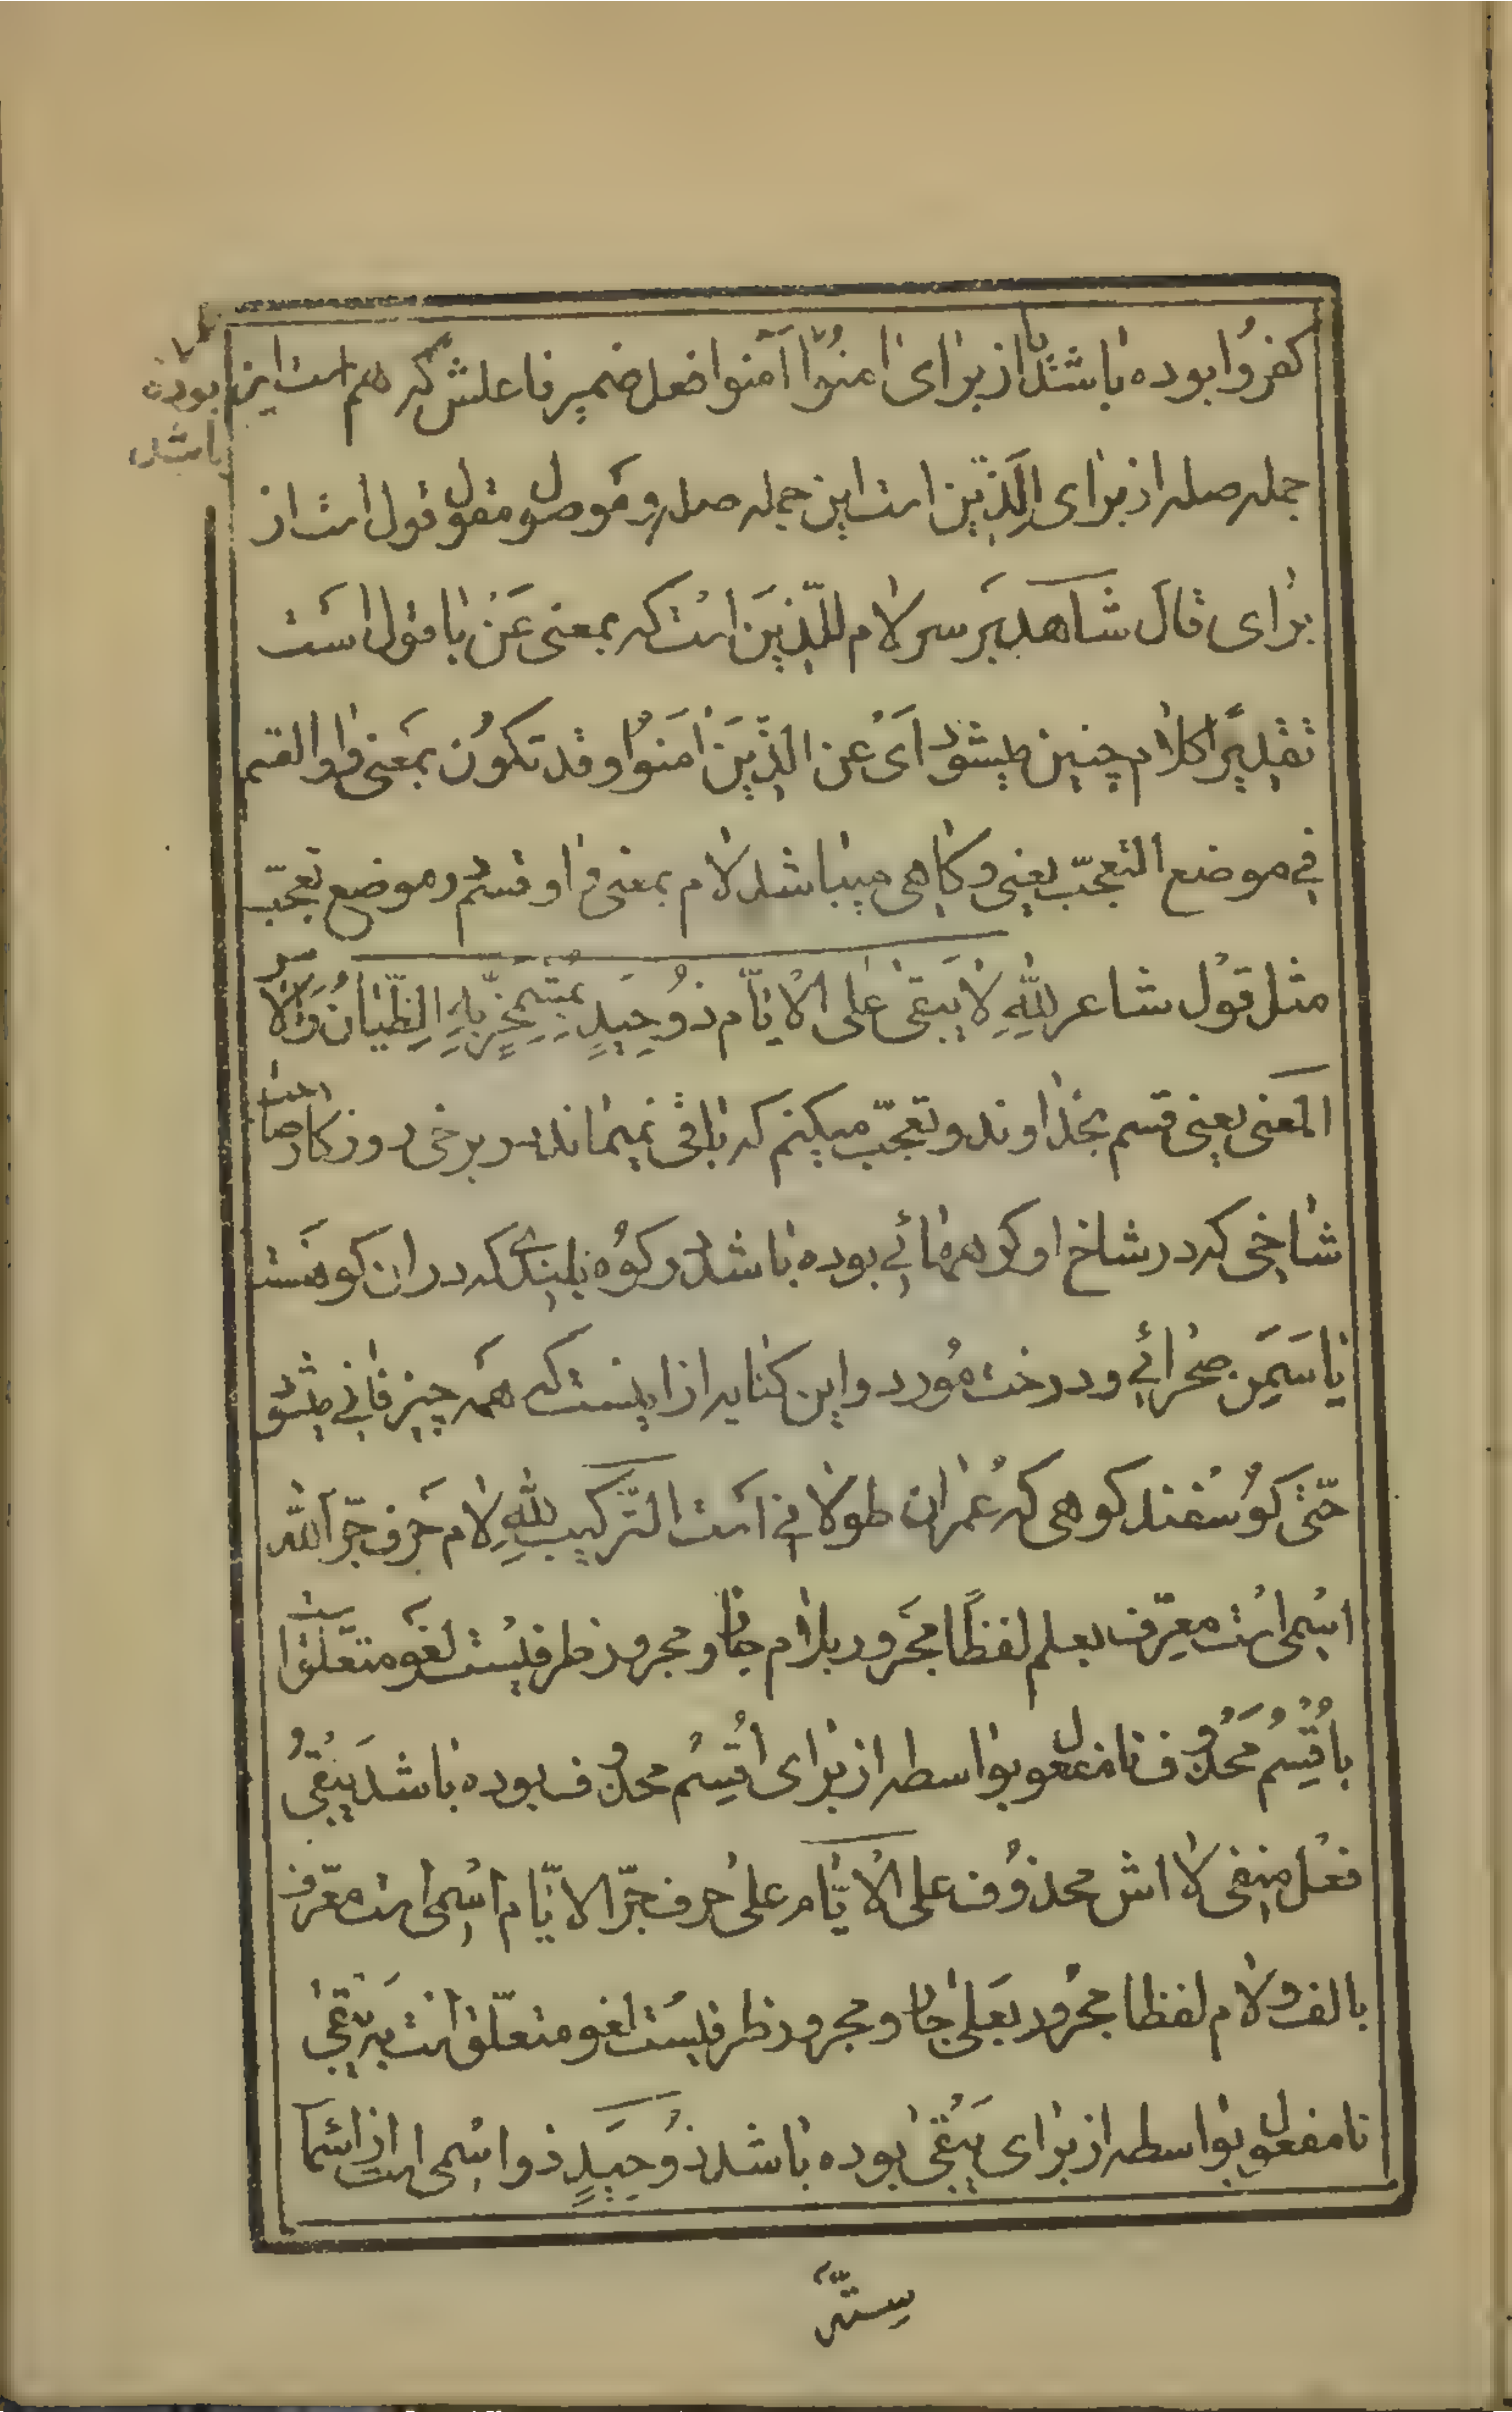 كفروا بوده باشد تا از برای امنوا آمنوا فعل ضمیر فاعلش که هم است این
بوده
باشد
جمله صله از برای اَلَّذینَ است این جمله صله و موصول مقول قول است از
برای قالَ شاهد بَر سر لام للّذینَ است که بمعنی عَنْ با قول است
تقدیر کلام چنین میشود اَیْ عن الذّینَ امَنوُا و قد تکوُن بمَعنی واو القسم
فی موضع التعجّب یعنی و کاهی میباشد لام بمعنی واو قسم در موضع تعجّب
مثل قوْل شاعر لِلّهِ لا یَبقی عَلی الْایّام ذوُ حِیَدٍ بمُشْمَخِرٍّ بِهِ الظّیّانُ وَالْاسُ
المَعنی یعنی قسم بخداوند و تعجّب میکنم که باقی نمیماند در برخی روزکار صاحب
شاخی که در شاخ او کرههائی بوده باشد در کوُه بلندی که در ان کوه هَست
یاسَمَن صحرائی و درخت مُورد و این کنایه از اینست که همَه چیز فانی میشود
حتّی کوُسْفند کوهی که عُمْرِ ان طولانی است التّرکیب لِلّهِ لام حَرف جَرّ اللّه
اسْمی است معرّف بعلم لفظًا مجَرور بلام جار و مجرور ظرفیسْت لغَو متعَلّق است
باُقْسِمُ مَحذُوف تا مفعول بواسطه از برای اُقْسِمُ محذُوف بوده باشد یَبْقیُ
فعْل منفی لا اش محذوُف عَلی الْایّام علی حرف جرّ الایّام اسْمی است معَرّف
بالف و لام لفظا مجرْور بعَلی جار و مجرور ظرفیسْت لغو متعلّق است بیَبْقی
تا مفعول بواسطه از برای یَبْقی بوده باشد ذوُ حِیَدٍ ذو اسْمی است از اسْماء
ستّه